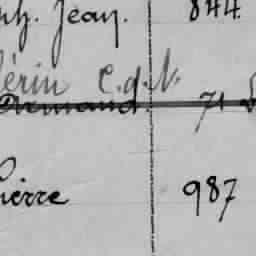 ph. Jean. 844
érin C.d.N.
Armand. 71
Pierre 987